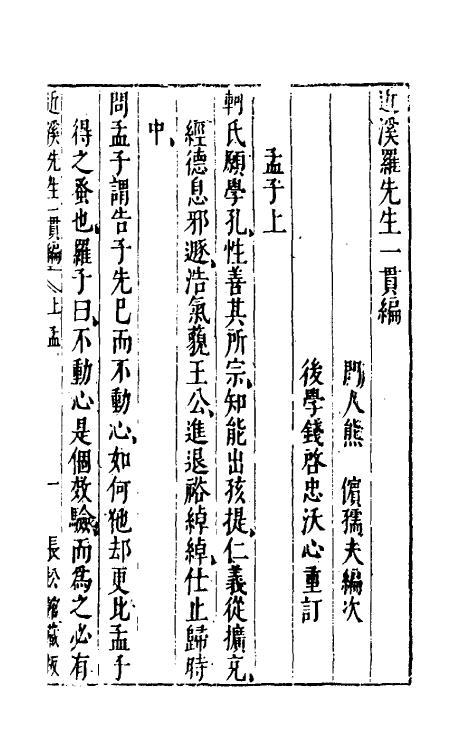 近溪羅先生一貫編
門人熊 儐孺夫編次
後學錢啓忠沃心重訂
孟子上
軻氏願學孔性善其所宗知能出孩提仁義從擴充
經德息邪遯浩氣藐王公進退裕綽綽仕止歸時
中
問孟子謂告子先已而不動心如何他却更比孟子
得之蚤也羅子曰不動心是個效驗而爲之必有
近溪先生一貫編 上孟 一 長松館藏板